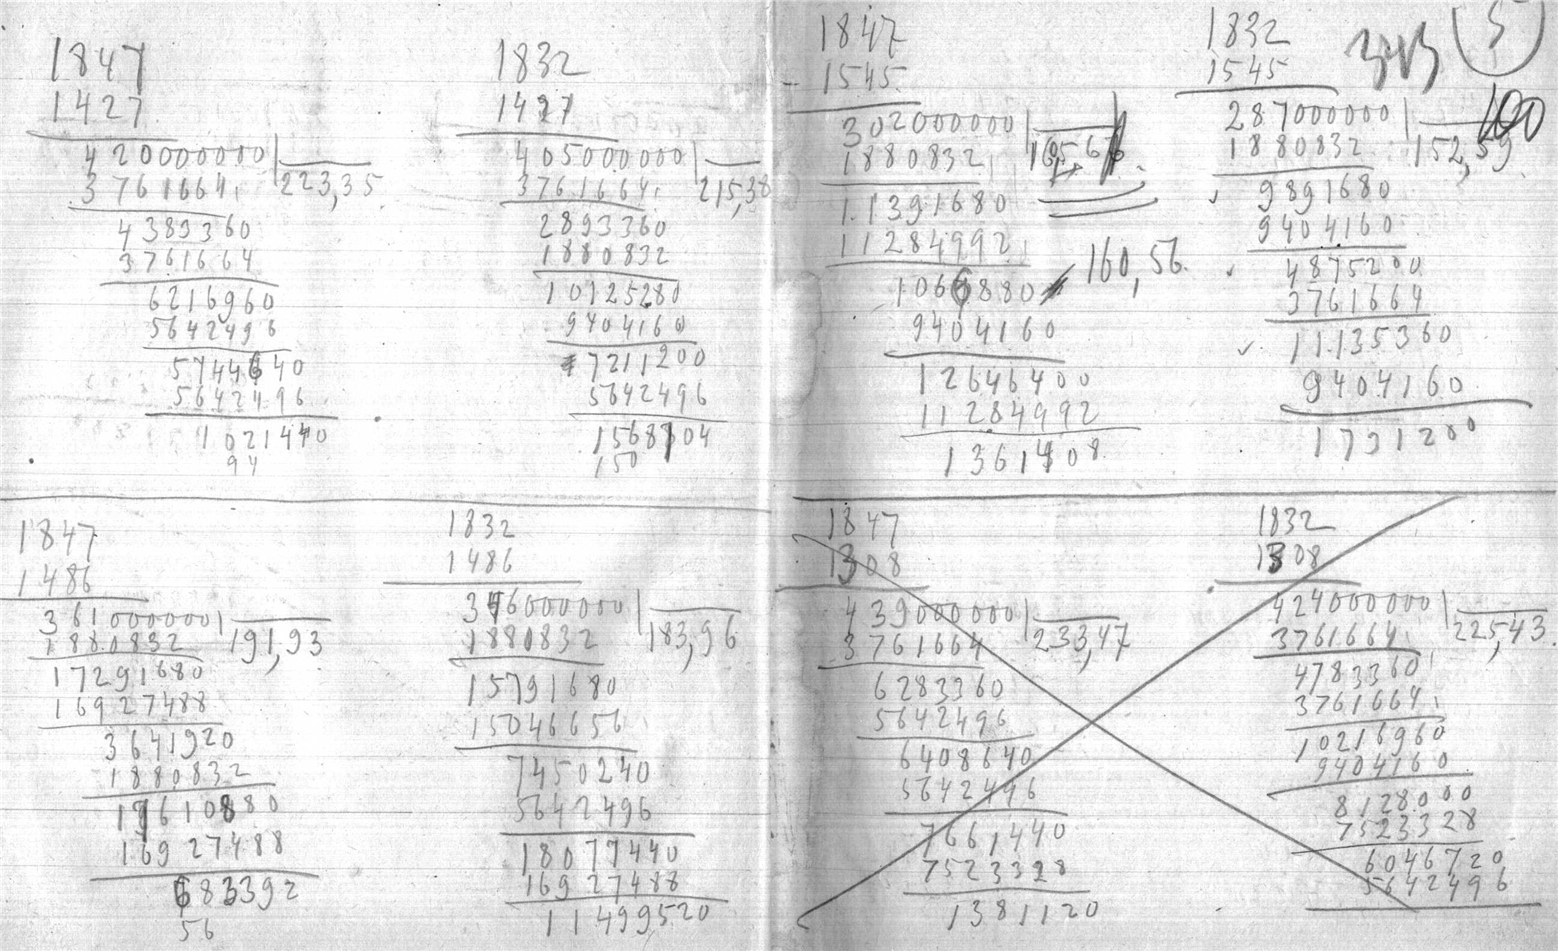 1847
1427
420000000
223,35
3761664
4389360
3761664
6216960
5642496
5744640
5642496
1021440
94
1832
1427
405000000
215,38
3761664
2893360
1880832
10125280
9404160
7211200
5642496
1568704
150
1847
1545
302000000
1880832
11391680
11284992
160,56
1066880
9404160
12646400
11284992
1361408
1832
1545
5
287000000
100
152,59
1880832
9891680
9404160
4875200
3761664
11135360
9404160
1731200
1847
1486
361000000
191,93
1880832
17291680
16927488
3641920
1880832
17610880
16927488
683392
56
1832
1486
346000000
183,96
1880832
15791680
15046656
7450240
5642496
18077440
16927488
11499520
1847
1308
439000000
233,47
3761664
6283360
5642496
6408640
5642496
7661440
7523328
1381120
1832
1308
424000000
225,43
3761664
4783360
3761664
10216960
9404160
8128000
7523328
6046720
5642496